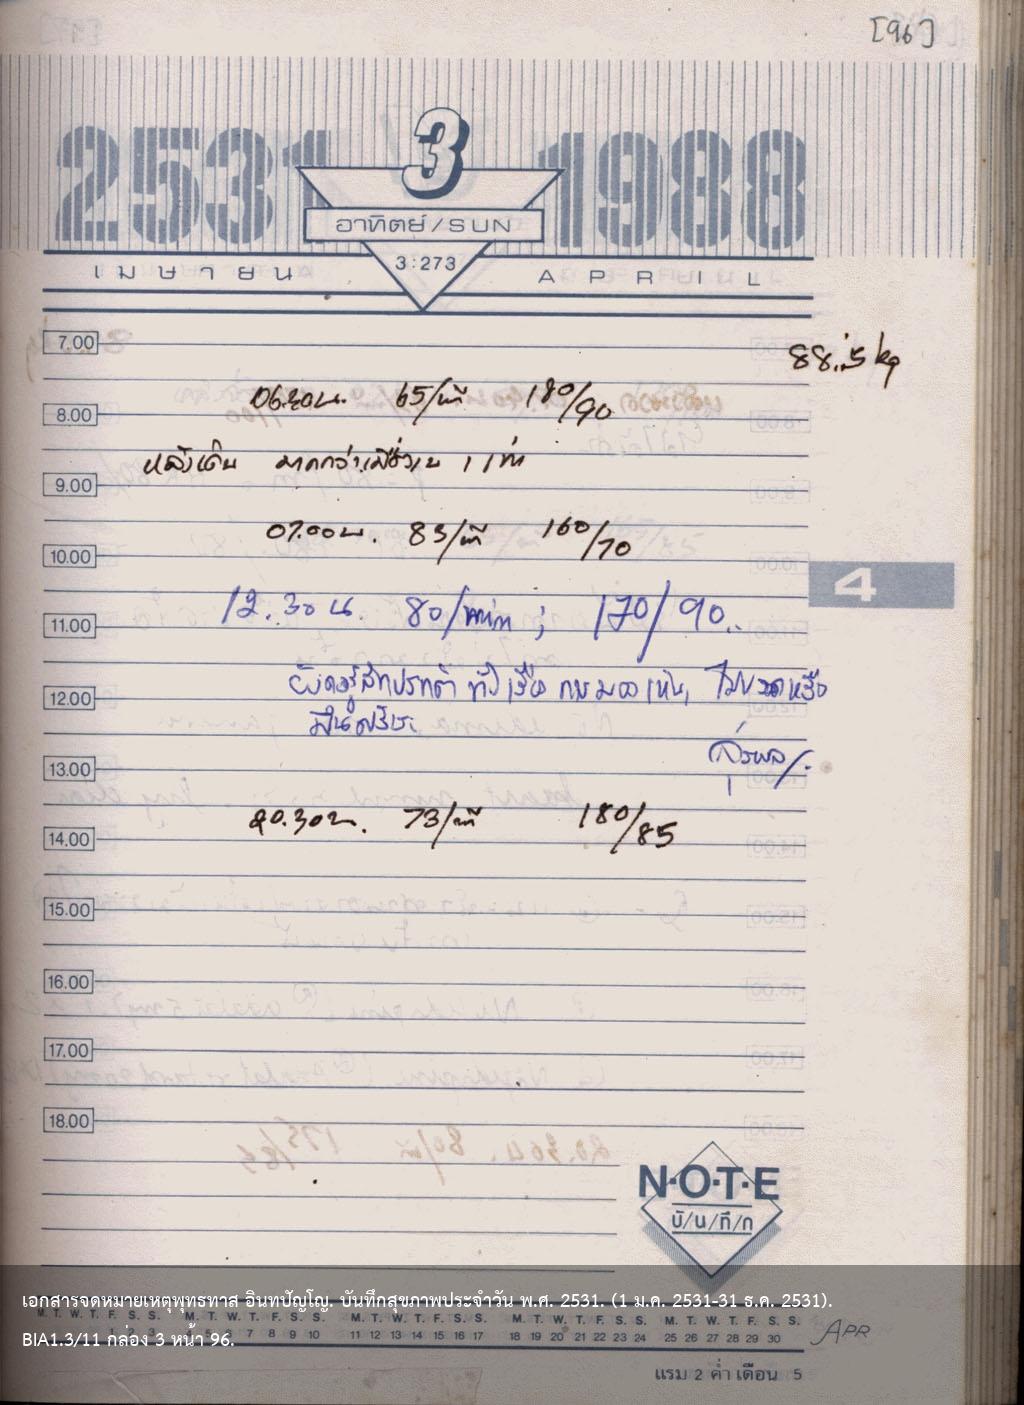 [96]
2531 3 1988
อาทิตย์/SUN
3:273
เมษายน APRIL
7.00
88.5 kg
06.30น. 65/นที 180/90
8.00
หลังเดิน มากกว่าเมื่อวาน 1 เท่า
9.00
07.00น. 83/นที 160/70
10.00
4
12.30 น. 80/min ; 170/90..
11.00
ยังคงรู้สึก ทั้งเรื่อง การมองเห็น, ไม่ปวดหรือ
12.00
มึนศรีษะ
13.00
20.30น. 73/นที 180/85
14.00
15.00
16.00
17.00
18.00
N·O·T·E
บั/น/ทึ/ก
เอกสารจดหมายเหตุพุทธทาส อินทปัญโญ. บันทึกสุขภาพประจำวัน พ.ศ. 2531. (1 ม.ค. 2531-31 ธ.ค. 2531).
M. T. W. T. F. S. S. M. T. W. T. F. S. S. M. T. W. T. F. S. S. M. T. W. T. F. S. S. M. T. W. T. F. S. S.
BIA1.3/11 กล่อง 3 หน้า 96.
6 7 8 9 10 11 12 13 14 15 16 17 18 19 20 21 22 23 24 25 26 27 28 29 30
APR
แรม 2 ค่ำ เดือน 5